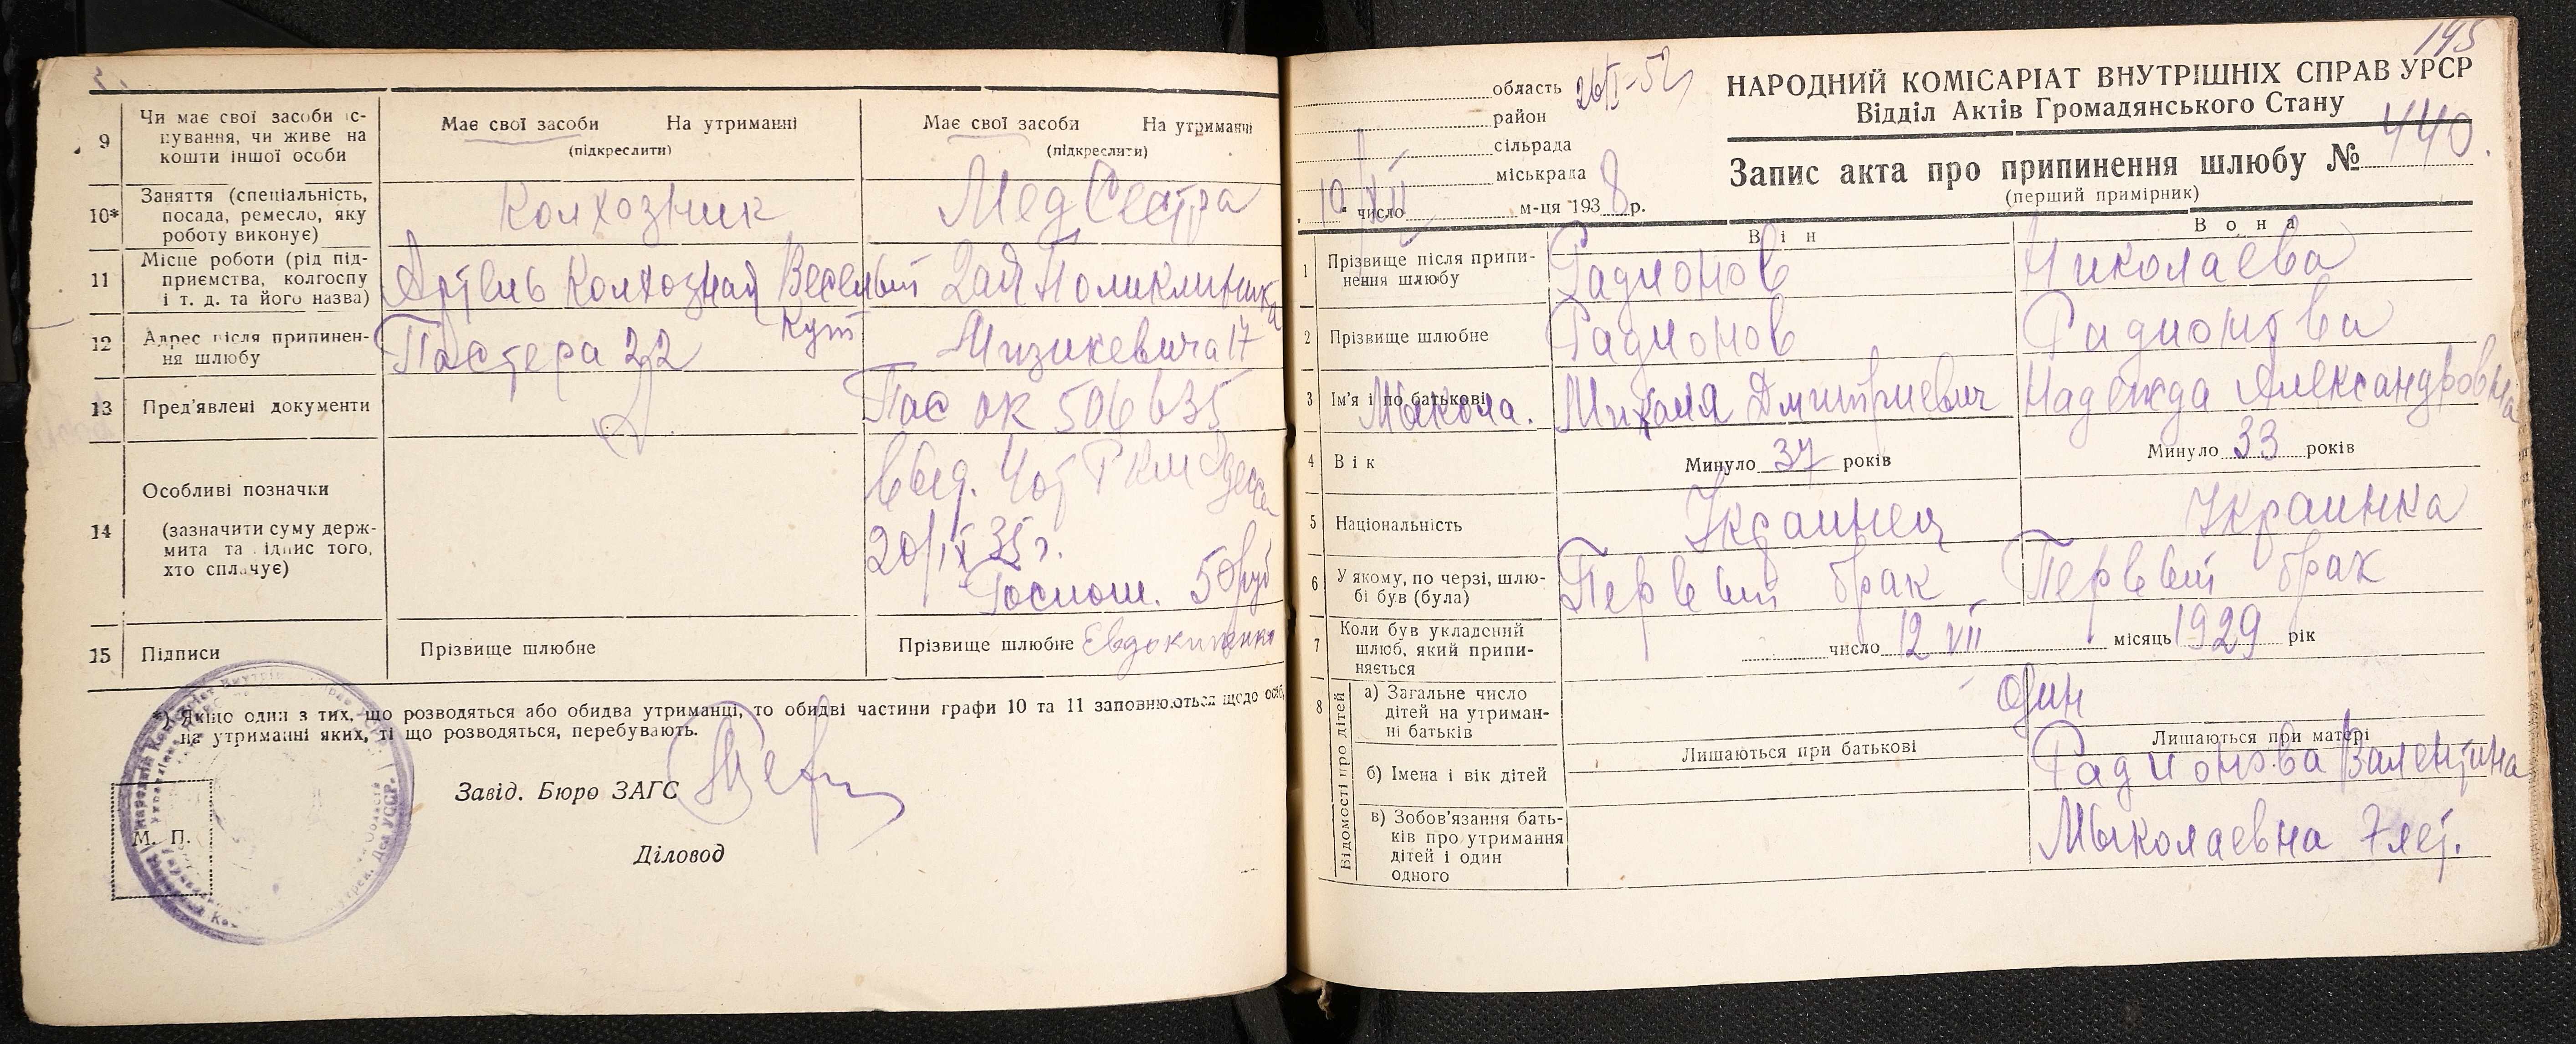 9
Чи має свої засоби іс-
нування, чи живе на
кошти іншої особи
Має свої засоби На утриманні
(підкреслити)
Має свої засоби На утриманні
(підкреслити)
10*
Заняття (спеціальність,
посада, ремесло, яку
роботу виконує)
Колхозник
Мед Сестра
11
Місце роботи (рід під-
приємства, колгоспу
і т. д. та його назва)
Артель Колхозная Веселый
Кут
2ая Поликлиника
12
Адрес після припинен-
ня шлюбу
Пастера 22
Мизикевича 17
13
Пред'явлені документи
Пас ОК 506635
14
Особливі позначки
(зазначити суму держ-
мита та підпис того,
хто сплачує)
выд. РКМ Одесса
20/IX 35 г.
Госпош. 50 руб
15
Підписи
Прізвище шлюбне
Прізвище шлюбне
*) Якщо один з тих, що розводяться або обидва утриманці, то обидві частини графи 10 та 11 заповнюються щодо осіб,
на утриманні яких, ті що розводяться, перебувають.
Завід. Бюро ЗАГС
М. П.
Діловод
195
область
район
сільрада
міськрада
10 число XII м-ця 1938 р.
НАРОДНИЙ КОМІСАРІАТ ВНУТРІШНІХ СПРАВ УРСР
Відділ Актів Громадянського Стану
Запис акта про припинення шлюбу № 440
(перший примірник)
Він
Вона
1
Прізвище після припи-
нення шлюбу
Радионов
Николаева
2
Прізвище шлюбне
Радионов
Радионова
3
Ім'я і по батькові
Мыкола.
Дмитриевич
Надежда Александровна
4
Вік
Минуло 37 років
Минуло 33 років
5
Національність
Украинец
Украинка
6
У якому, по черзі, шлю-
бі був (була)
Первый брак
Первый брак
7
Коли був укладений
шлюб, який припи-
няється
число 12 VII місяць 1929 рік
8
Відомості про дітей
а) Загальне число
дітей на утриман-
ні батьків
один
б) Імена і вік дітей
Лишаються при батькові
Лишаються при матері
Радионова Валентина
Мыколаевна 7 лет.
в) Зобов'язання бать-
ків про утримання
дітей і один
одного